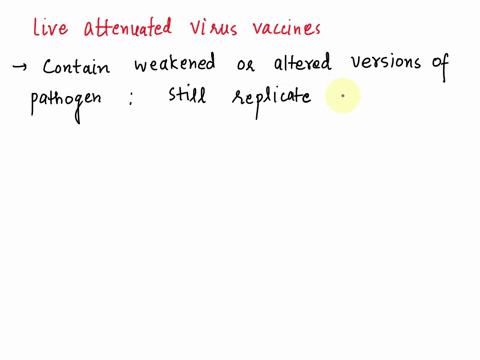 Live attenuated virus vaccines
→ Contain weakened or altered versions of
pathogen : Still replicate